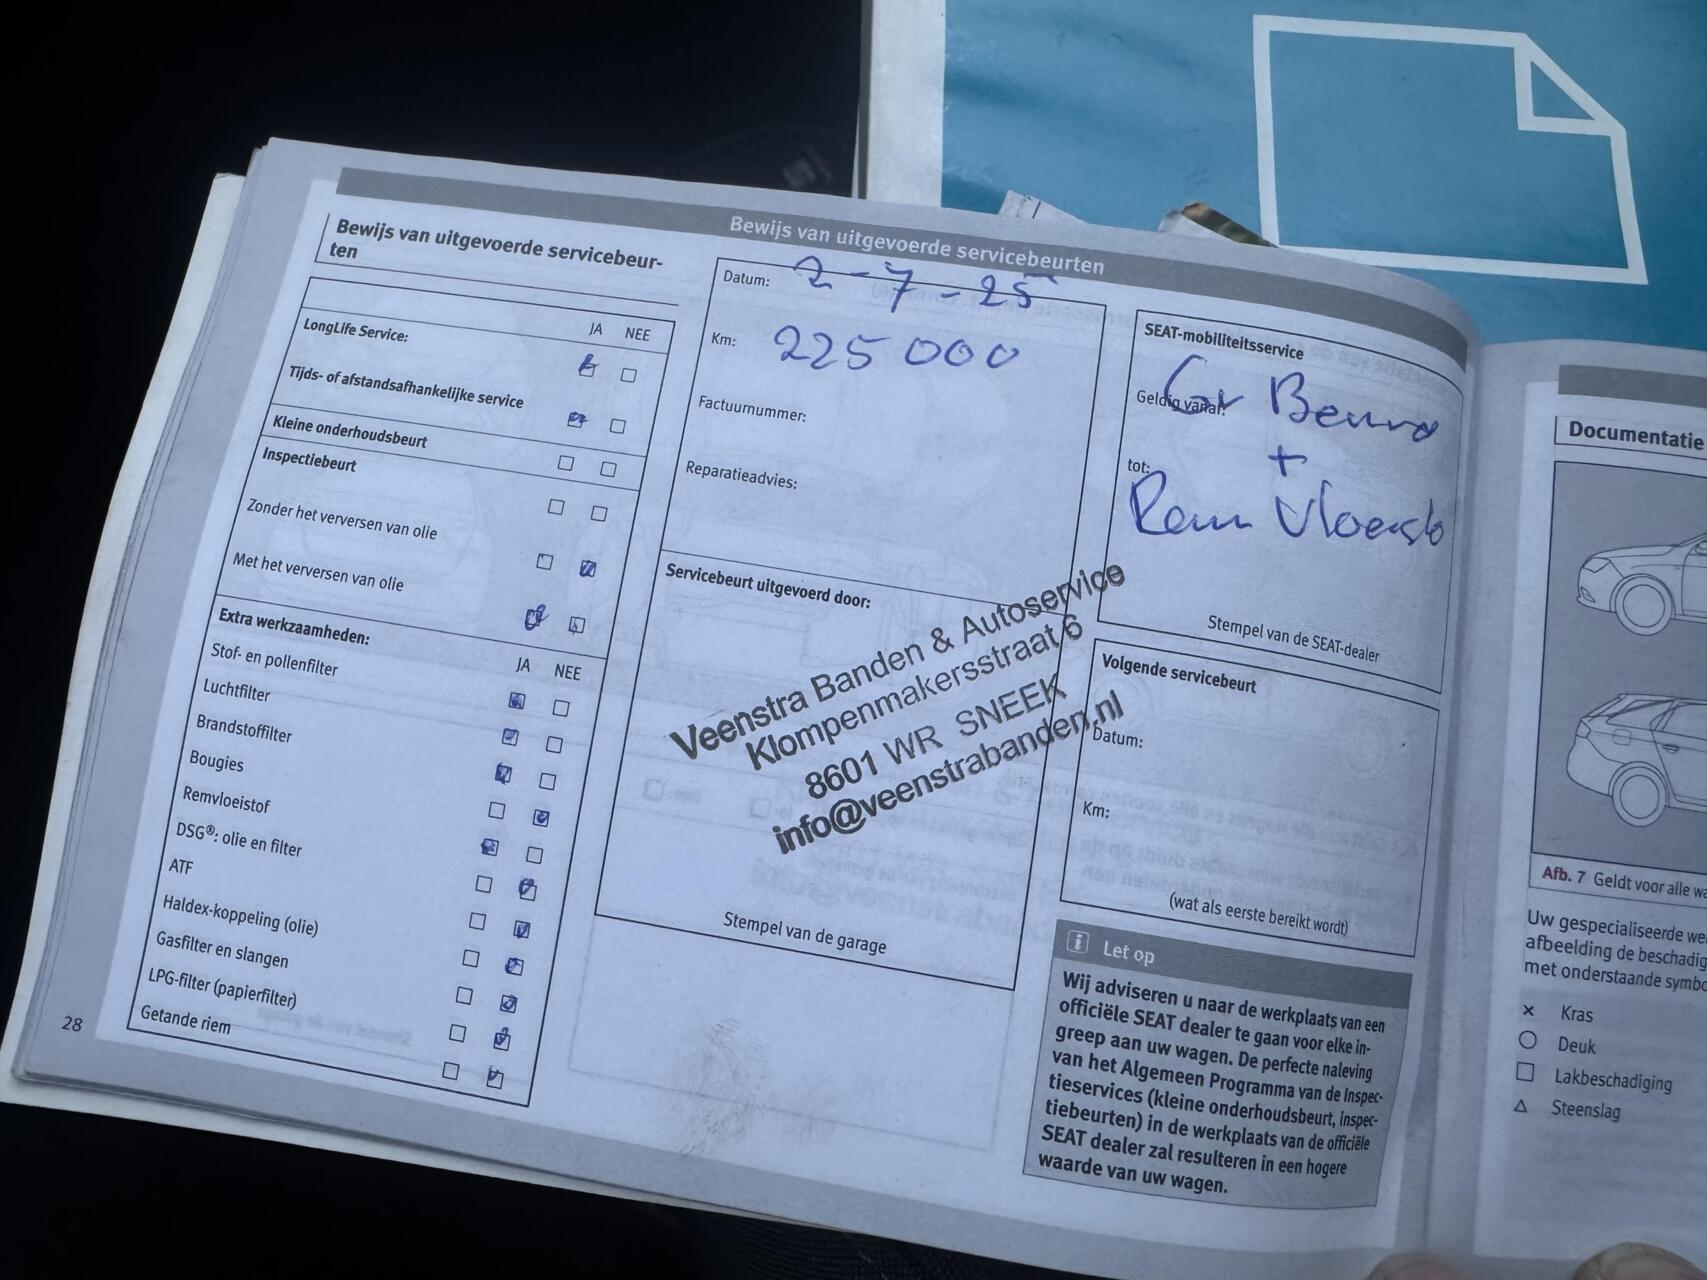 Bewijs van uitgevoerde servicebeurten
Bewijs van uitgevoerde servicebeur-
ten
JA NEE
LongLife Service:
Tijds- of afstandsafhankelijke service
Kleine onderhoudsbeurt
Inspectiebeurt
Zonder het verversen van olie
Met het verversen van olie
Extra werkzaamheden:
JA NEE
Stof- en pollenfilter
Luchtfilter
Brandstoffilter
Bougies
Remvloeistof
DSG®: olie en filter
ATF
Haldex-koppeling (olie)
Gasfilter en slangen
LPG-filter (papierfilter)
Getande riem
28
Datum: 2-7-25
Km: 225000
Factuurnummer:
Reparatieadvies:
Servicebeurt uitgevoerd door:
Veenstra Banden & Autoservice
Klompenmakersstraat 6
8601 WR SNEEK
info@veenstrabanden.nl
Stempel van de garage
SEAT-mobiliteitsservice
Geldig vanaf:
Gr Beurt
+
tot:
Rem Vloeisto
Stempel van de SEAT-dealer
Volgende servicebeurt
Datum:
Km:
(wat als eerste bereikt wordt)
i Let op
Wij adviseren u naar de werkplaats van een
officiële SEAT dealer te gaan voor elke in-
greep aan uw wagen. De perfecte naleving
van het Algemeen Programma van de Inspec-
tieservices (kleine onderhoudsbeurt, inspec-
tiebeurten) in de werkplaats van de officiële
SEAT dealer zal resulteren in een hogere
waarde van uw wagen.
Documentatie
Afb. 7 Geldt voor alle wa
Uw gespecialiseerde wer
afbeelding de beschadig
met onderstaande symbo
Kras
Deuk
Lakbeschadiging
Steenslag